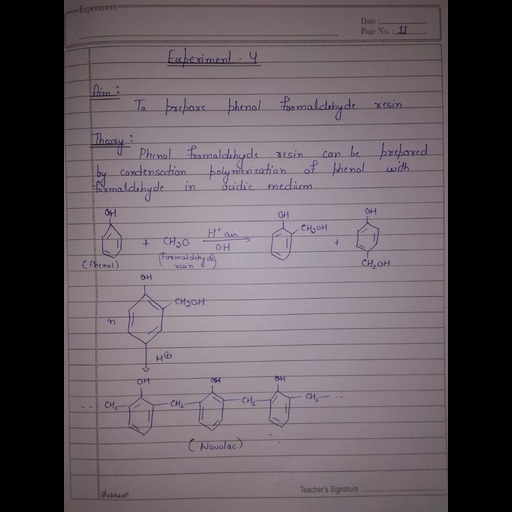 Experiment
Date :
Page No. : 11
Experiment - 4
Aim :
To prepare phenol formaldehyde resin
Theory :
Phenol formaldehyde resin can be prepared
by condensation polymerization of phenol with
formaldehyde in acidic medium
OH
+ CH2O
H+ or
OH
OH
CH2OH
+
OH
CH2OH
(Phenol)
(Formaldehyde
resin)
OH
CH2OH
n
H⊕
OH OH OH
--- CH2 CH2 CH2 CH2 ---
(Novolac)
Teacher's Signature :